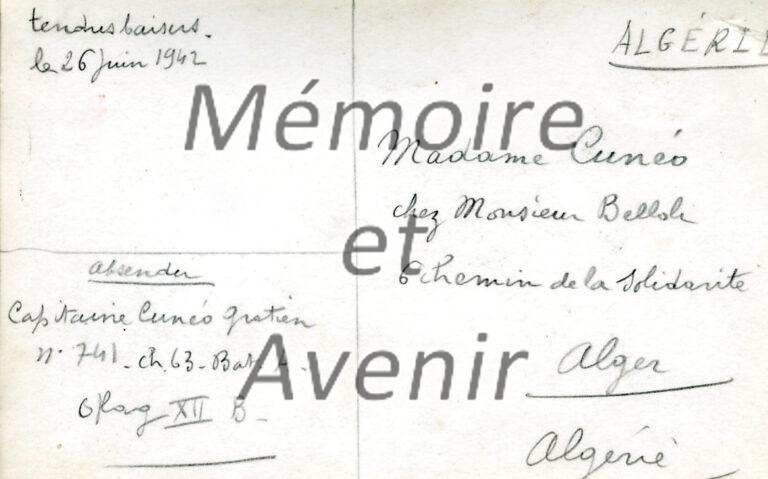 tendres baisers.
le 26 juin 1942
ALGÉRIE
Mémoire
et
Avenir
Madame Cunéo
chez Monsieur
6 Chemin de la Solidarité
Alger
Algérie
Absender
Capitaine Cunéo Gratien
n° 741 - ch. 63 - Bat. A -
Oflag XVII B -